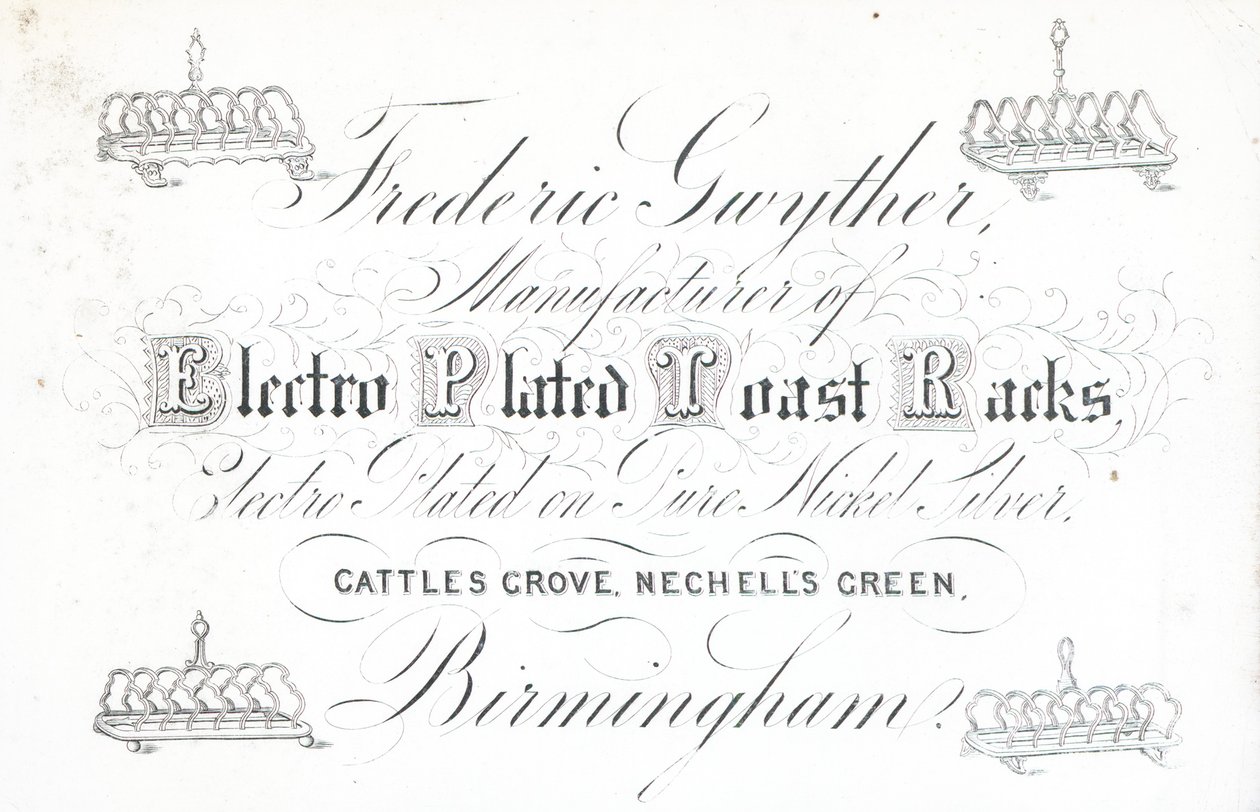 Frederic Gwyther,
Manufacturer of
Electro Plated Toast Racks,
Electro Plated on Pure Nickel Silver,
CATTLES GROVE, NECHELL'S GREEN,
Birmingham.